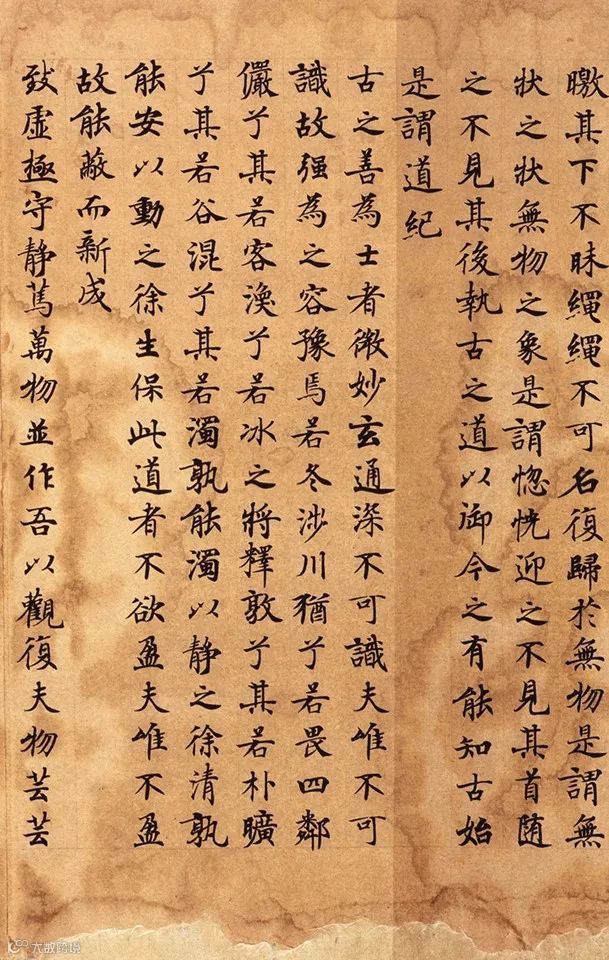 曒其下不昧繩繩不可名復歸於無物是謂無
狀之狀無物之象是謂惚恍迎之不見其首随
之不見其後執古之道以御今之有能知古始
是謂道紀
古之善為士者微妙玄通深不可識夫唯不可
識故强為之容豫焉若冬涉川猶兮若畏四鄰
儼兮其若客渙兮若冰之將釋敦兮其若朴曠
兮其若谷混兮其若濁孰能濁以静之徐清孰
能安以動之徐生保此道者不欲盈夫唯不盈
故能蔽而新成
致虛極守静篤萬物並作吾以觀復夫物芸芸
大数跨境